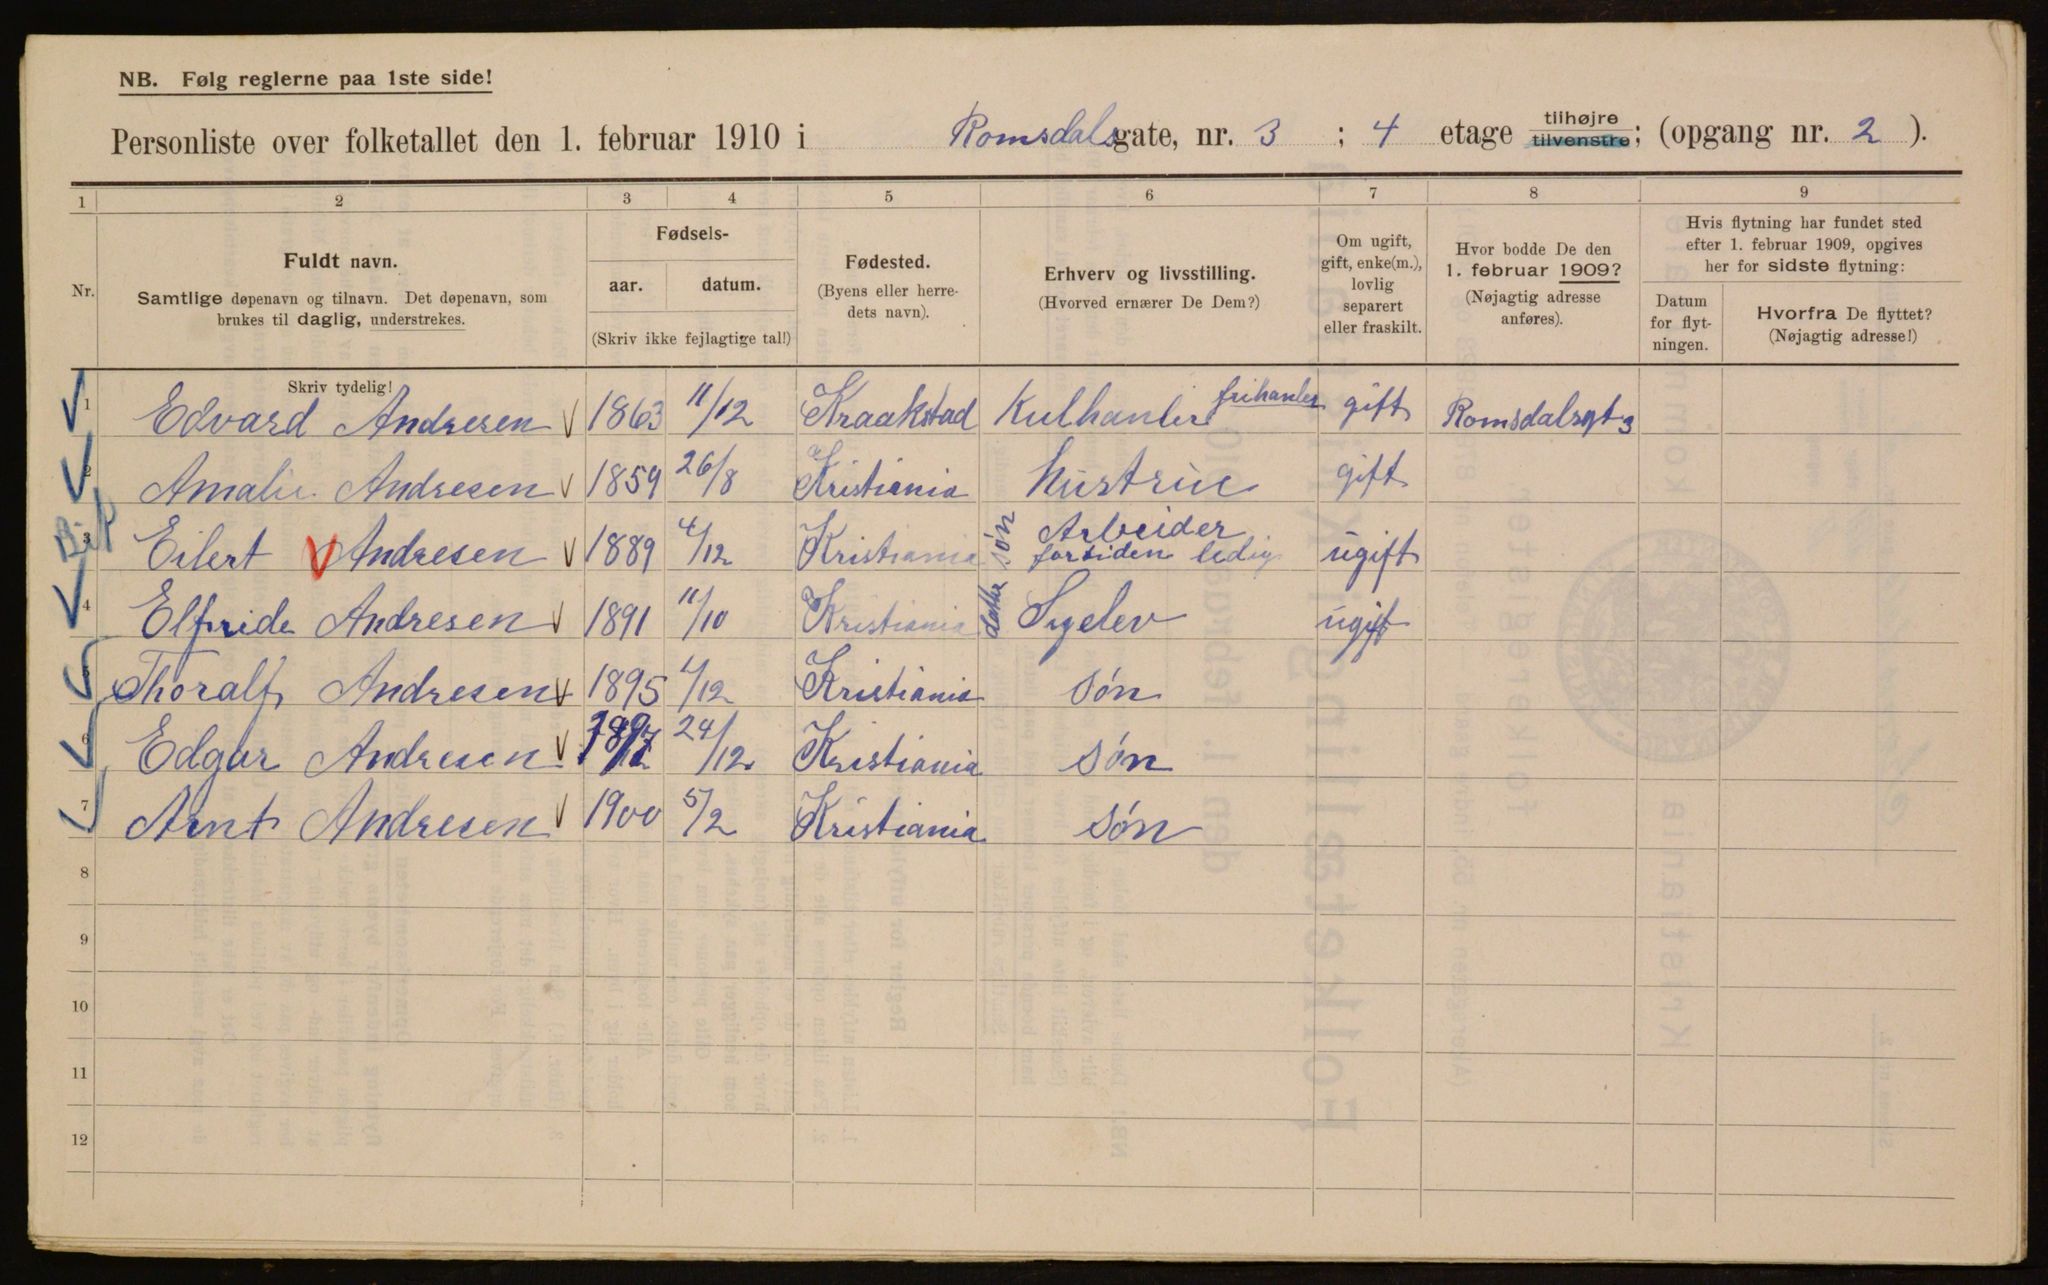 NB. Følg reglerne paa 1ste side!
Personliste over folketallet den 1. februar 1910 i Romsdalsgate, nr. 3 ; 4 etage tilhøjre tilvenstre; (opgang nr. 2 ).
1 2 3 4 5 6 7 8 9
Nr.
Fuldt navn.
Samtlige døpenavn og tilnavn. Det døpenavn, som
brukes til daglig, understrekes.
Fødsels-
aar. datum.
(Skriv ikke fejlagtige tal!)
Fødested.
(Byens eller herre-
dets navn).
Erhverv og livsstilling.
(Hvorved ernærer De Dem?)
Om ugift,
gift, enke(m.),
lovlig
separert
eller fraskilt.
Hvor bodde De den
1. februar 1909?
(Nøjagtig adresse
anføres).
Hvis flytning har fundet sted
efter 1. februar 1909, opgives
her for sidste flytning:
Datum
for flyt-
ningen.
Hvorfra De flyttet?
(Nøjagtig adresse!)
Skriv tydelig!
1 Edvard Andresen 1863 11/12 Kraakstad Kulhanler frihanler gift Romsdalsgt 3
2 Amalie Andresen 1859 26/8 Kristiania Hustrue gift
3 Eilert Andresen 1889 4/12 Kristiania søn Arbeider fortiden ledig ugift
4 Elfride Andresen 1891 11/10 Kristiania datter Syelev ugift
5 Thoralf Andresen 1895 4/12 Kristiania søn
6 Edgar Andresen 1897 24/12 Kristiania søn
7 Arnt Andresen 1900 5/2 Kristiania søn
8
9
10
11
12